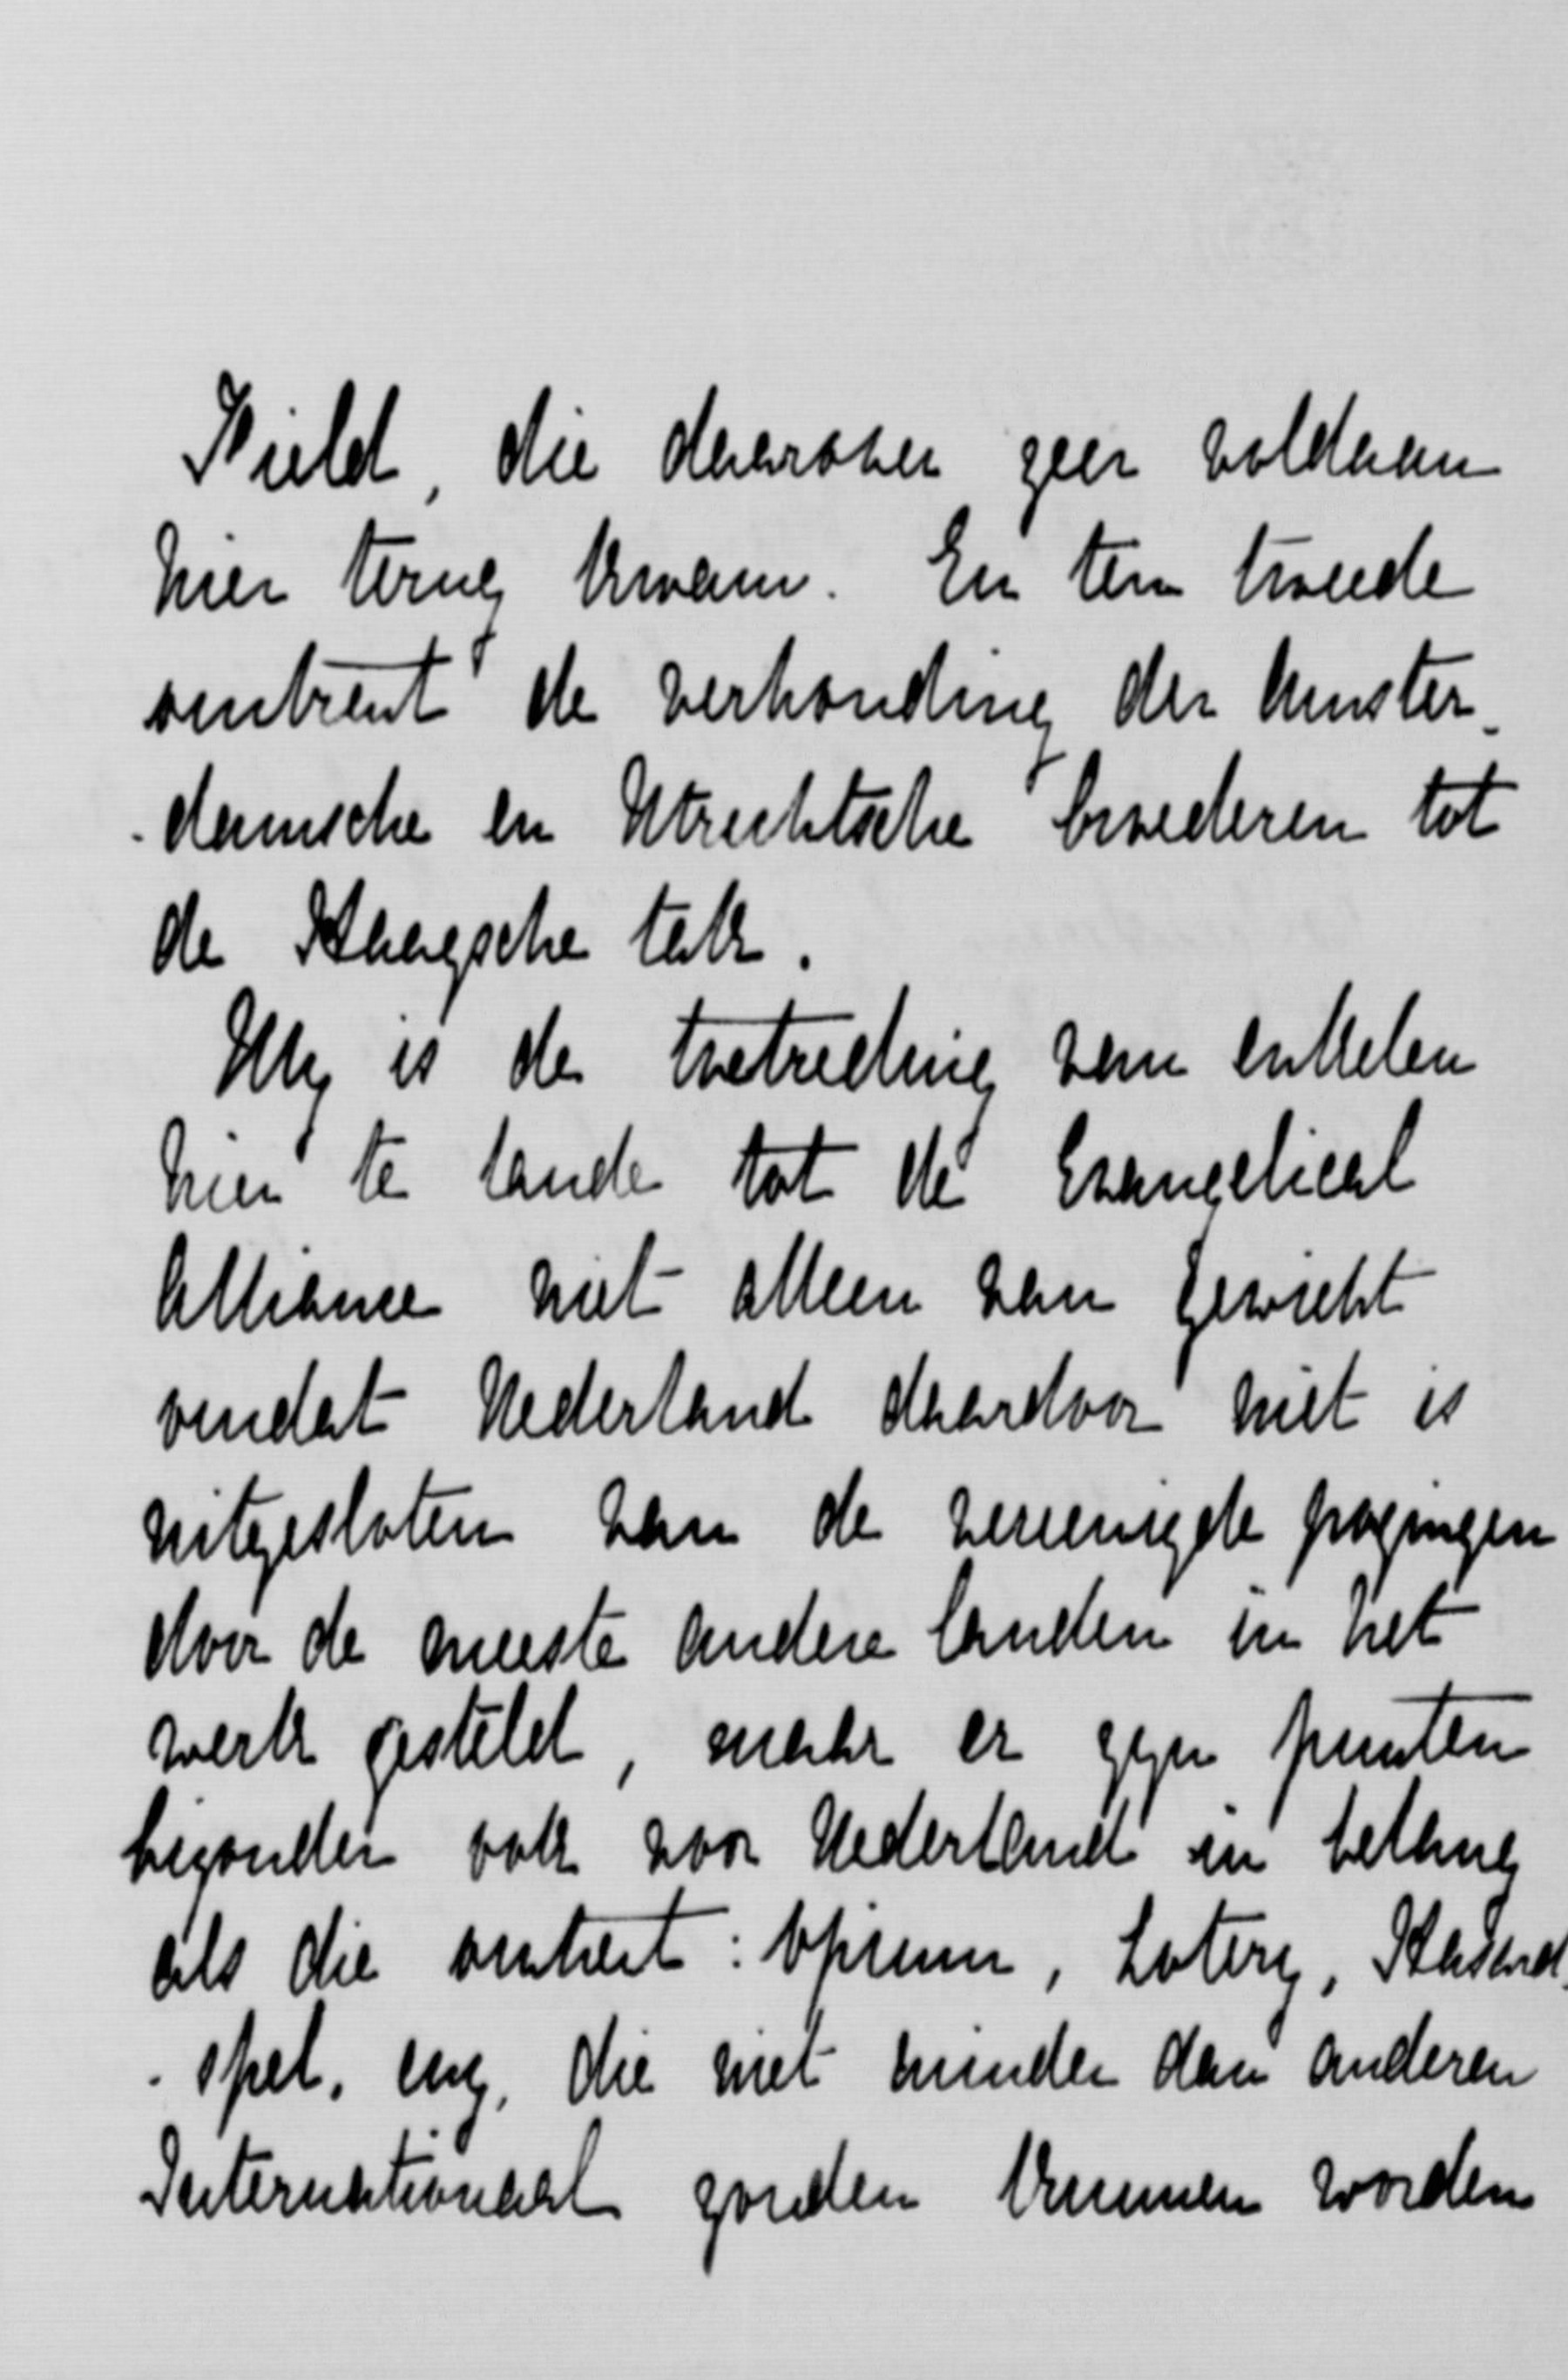 Field, die daarover zeer voldaan
hier terug kwam. En ten tweede
omtrent de verhouding der Amster-
-damsche en Utrechtsche broederen tot
de Haagsche tak.
My is de toetreding van enkelen
hier te lande tot de Evangelical
Alliance niet alleen van gewicht
omdat Nederland daardoor niet is
uitgesloten van de vereenigde pogingen
door de meeste andere landen in het
werk gesteld, maar er zyn punten
bizonder ook voor Nederland in belang
als die omtrent: Opium, Lotery, Hasard-
-spel. enz. die niet minder dan anderen
Internationaal zouden kunnen worden